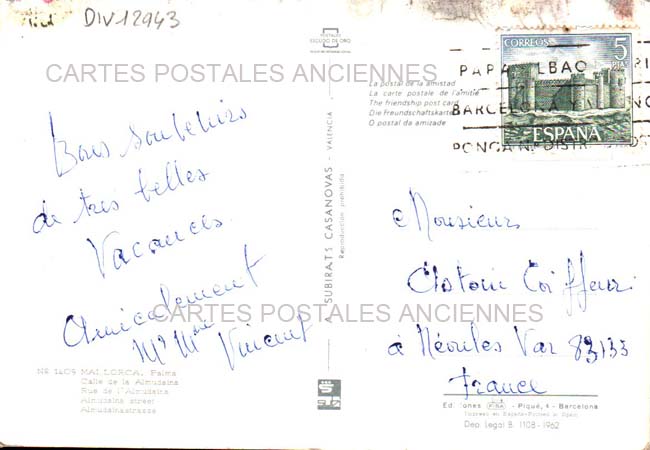 DIV12943
POSTALES
ESCUDO DE ORO
CARTES POSTALES ANCIENNES
La postal de la amistad
La carte postale de l'amitié
The friendship post card
Die Freundschaftskarte
O postal da amizade
CORREOS 5
PTA
ESPAÑA
PARA BILBAO
BARCELONA
PONGA DISTR
Bons souvenirs
de très belles
Vacances
Amicalement
Mr Mme Vincent
A. SUBIRATS CASANOVAS - VALENCIA
Reproducción prohibida
Monsieur
Coiffeur
CARTES POSTALES ANCIENNES
à Néoules Var 83133
France
Nº 1409 MALLORCA. Palma
Calle de la Almudaina
Rue de l'Almudaina
Almudaina street
Almudainastrasse
Ediciones - Piqué, 4 - Barcelona
Impreso en España-Printed in Spain
Dep. Legal B. 1108-1962